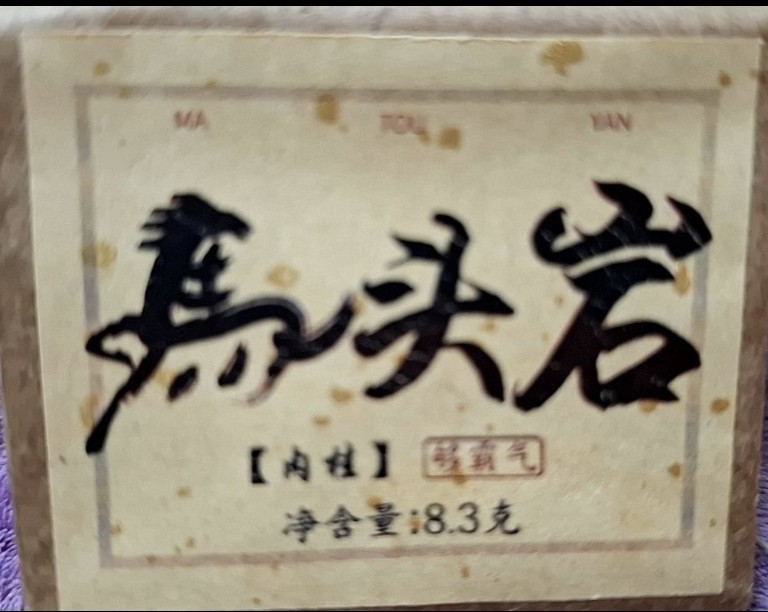 MA TOU YAN
馬头岩
【肉桂】 够霸气
净含量:8.3克